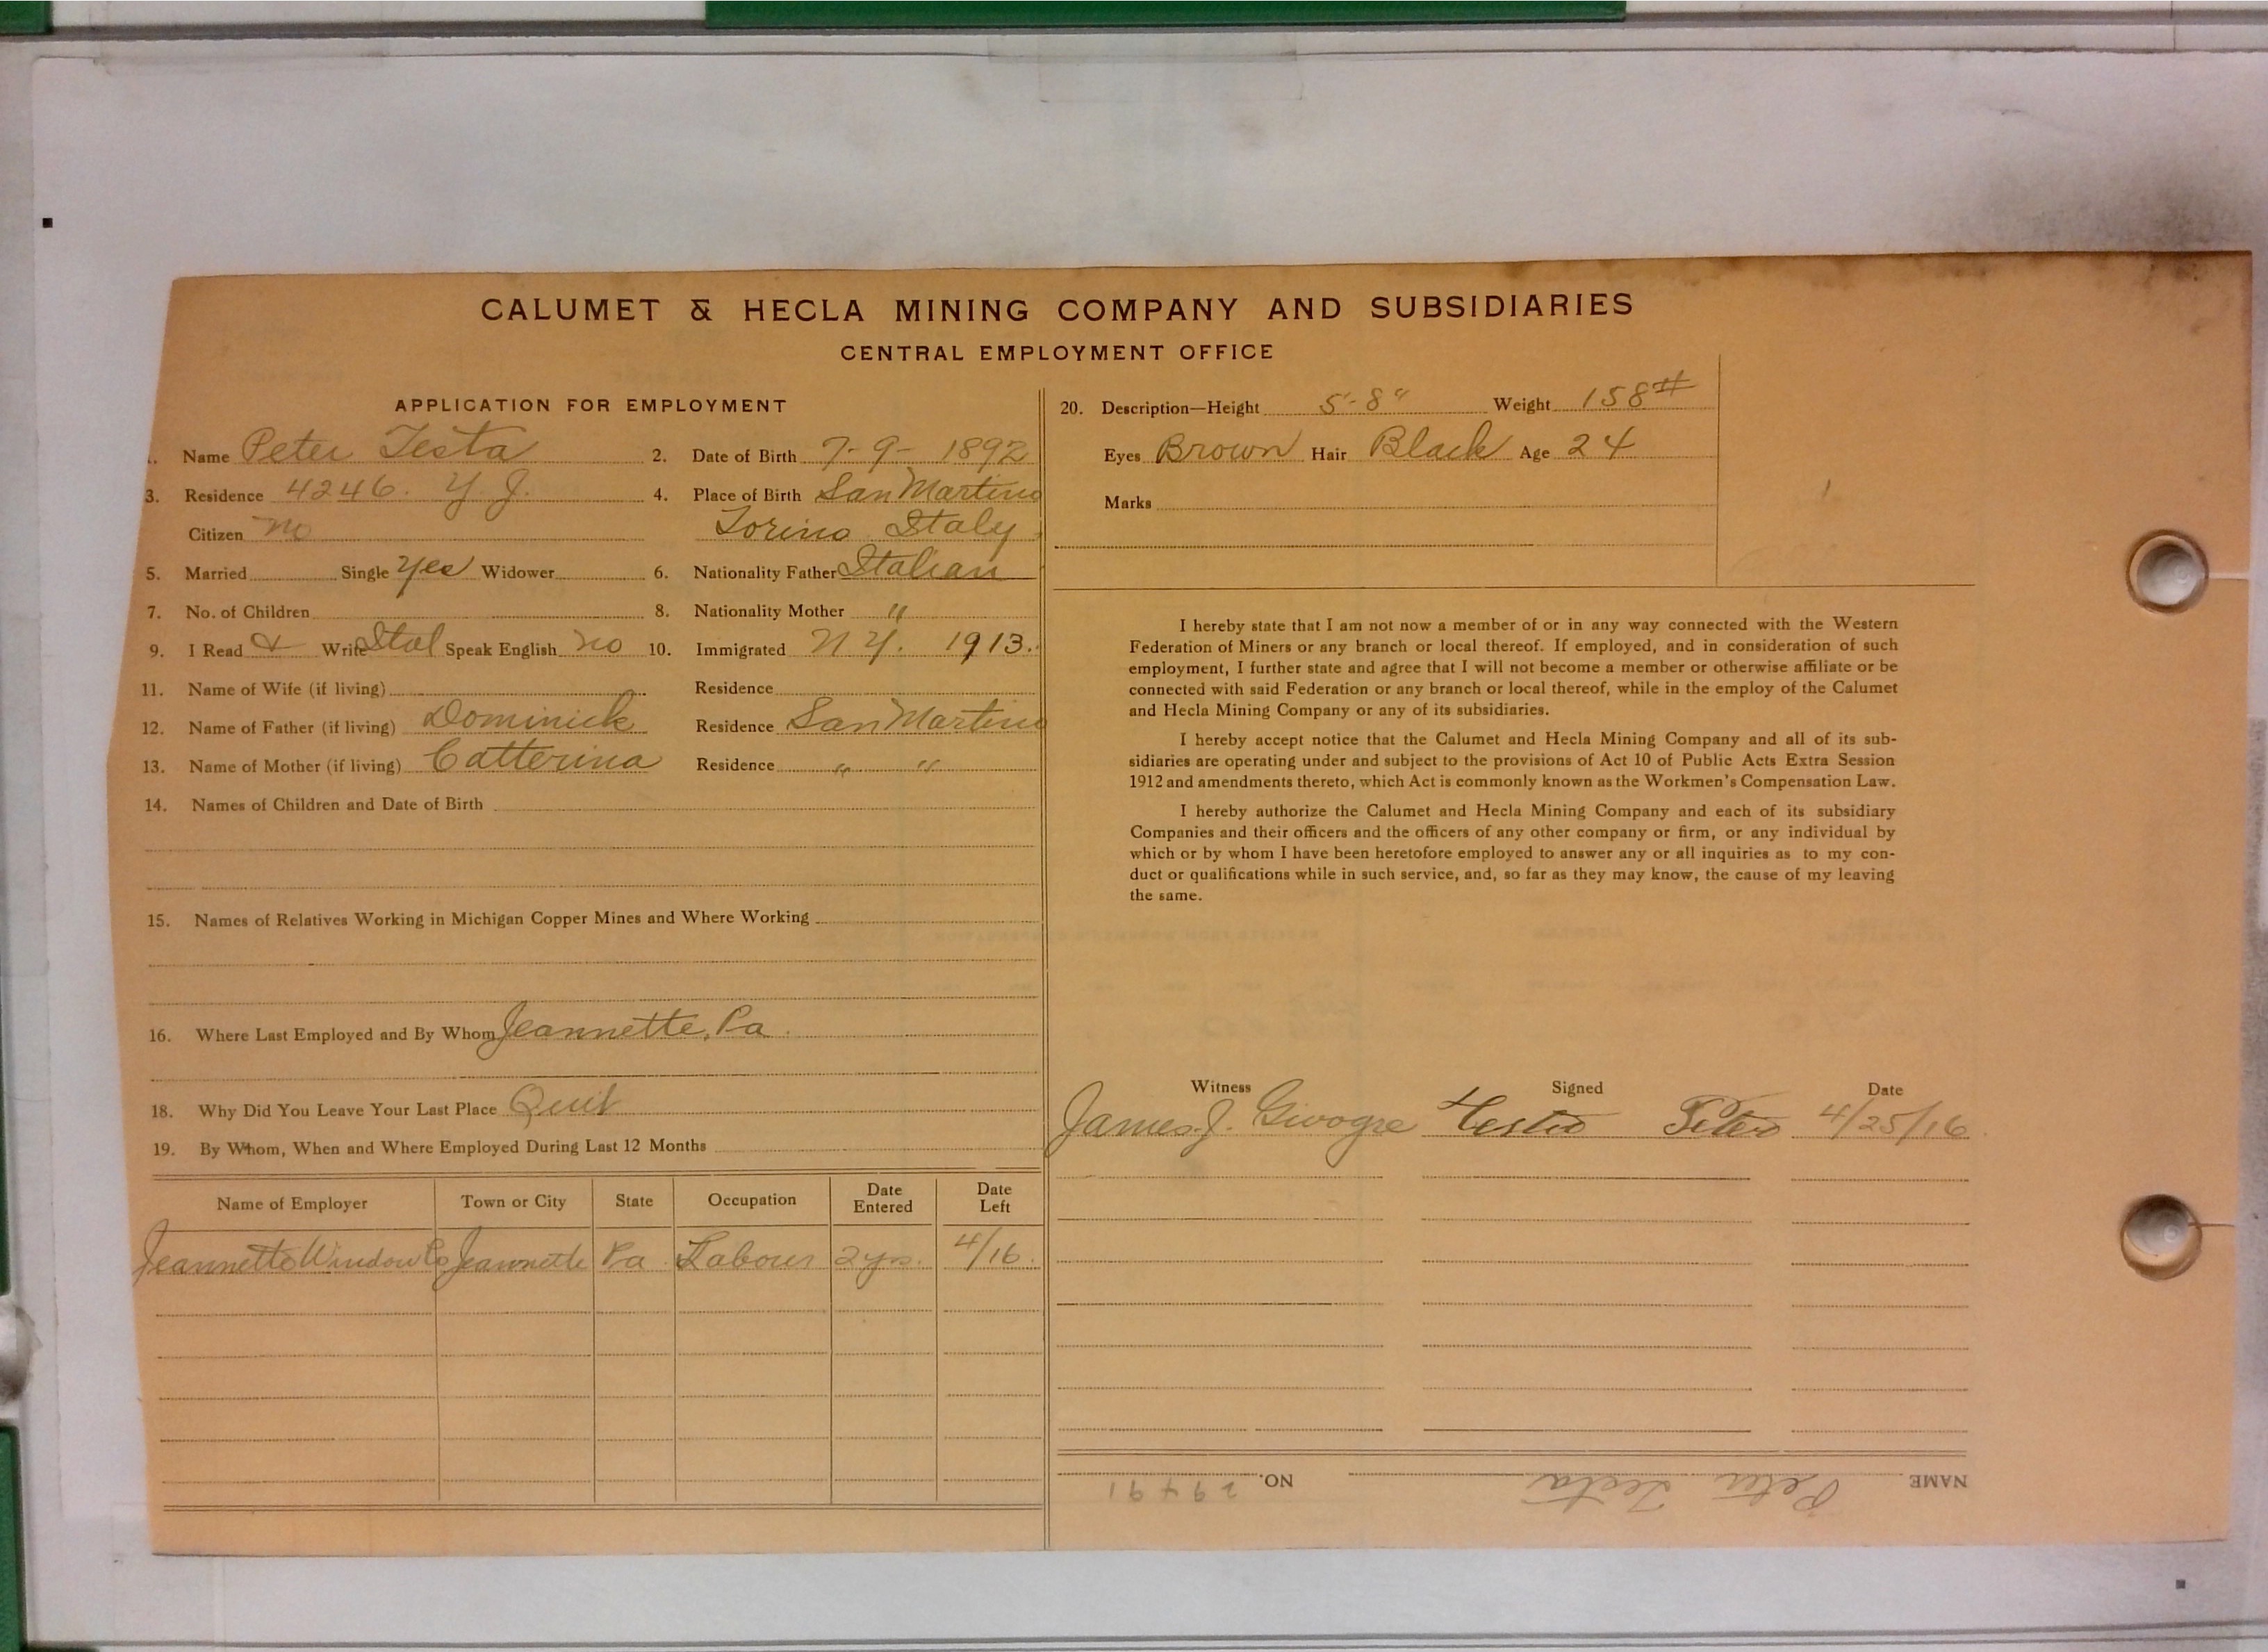 CALUMET & HECLA MINING COMPANY AND SUBSIDIARIES
CENTRAL EMPLOYMENT OFFICE
APPLICATION FOR EMPLOYMENT
1. Name Peter Testa 2. Date of Birth 7-9-1892
3. Residence 4246. Y. J. 4. Place of Birth San Martino
Citizen no Torino Italy
5. Married Single Yes Widower 6. Nationality Father Italian
7. No. of Children 8. Nationality Mother "
9. I Read & Write Ital Speak English no 10. Immigrated N Y. 1913.
11. Name of Wife (if living) Residence
12. Name of Father (if living) Dominick Residence San Martino
13. Name of Mother (if living) Catterina Residence " "
14. Names of Children and Date of Birth
15. Names of Relatives Working in Michigan Copper Mines and Where Working
16. Where Last Employed and By Whom Jeannette, Pa.
18. Why Did You Leave Your Last Place Quit
19. By Whom, When and Where Employed During Last 12 Months
Name of Employer Town or City State Occupation Date Entered Date Left
Jeannette Window Co Jeannette Pa. Labour 2 yrs. 4/16.
20. Description—Height 5'-8" Weight 158#
Eyes Brown Hair Black Age 24
Marks
I hereby state that I am not now a member of or in any way connected with the Western
Federation of Miners or any branch or local thereof. If employed, and in consideration of such
employment, I further state and agree that I will not become a member or otherwise affiliate or be
connected with said Federation or any branch or local thereof, while in the employ of the Calumet
and Hecla Mining Company or any of its subsidiaries.
I hereby accept notice that the Calumet and Hecla Mining Company and all of its sub-
sidiaries are operating under and subject to the provisions of Act 10 of Public Acts Extra Session
1912 and amendments thereto, which Act is commonly known as the Workmen's Compensation Law.
I hereby authorize the Calumet and Hecla Mining Company and each of its subsidiary
Companies and their officers and the officers of any other company or firm, or any individual by
which or by whom I have been heretofore employed to answer any or all inquiries as to my con-
duct or qualifications while in such service, and, so far as they may know, the cause of my leaving
the same.
Witness Signed Date
James J. 4/25/16
NAME Peter Testa NO. 29491